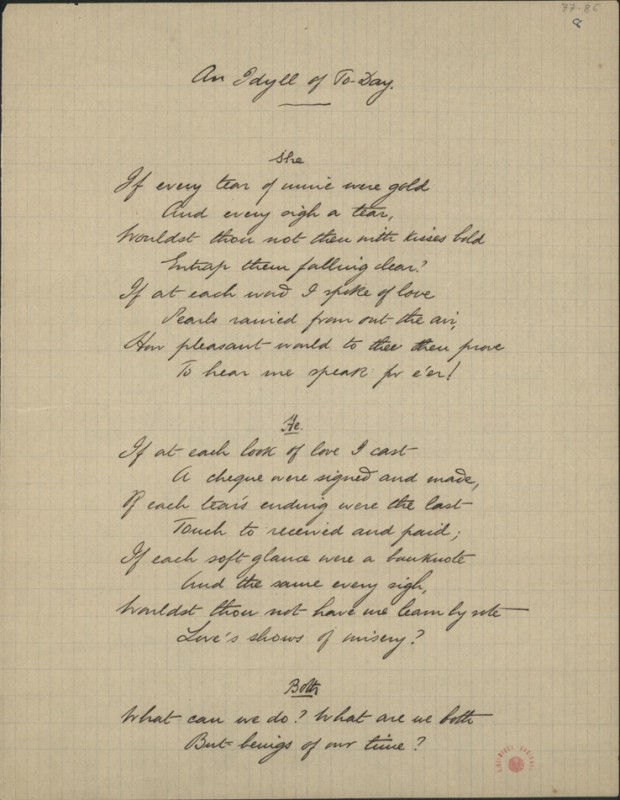 77-86
8
An Idyll of To-Day.
She
If every tear of mine were gold
And every sigh a tear,
Wouldst thou not then with kisses bold
Entrap them falling clear?
If at each word I spoke of love
Pearls rained from out the air,
How pleasant would to thee then prove
To hear me speak for e'er!
He.
If at each look of love I cast
A cheque were signed and made,
If each tear's ending were the last
Touch to received and paid;
If each soft glance were a banknote
And the same every sigh,
Wouldst thou not have me learn by rote
Love's shows of misery?
Both
What can we do? What are we both
But beings of our time?